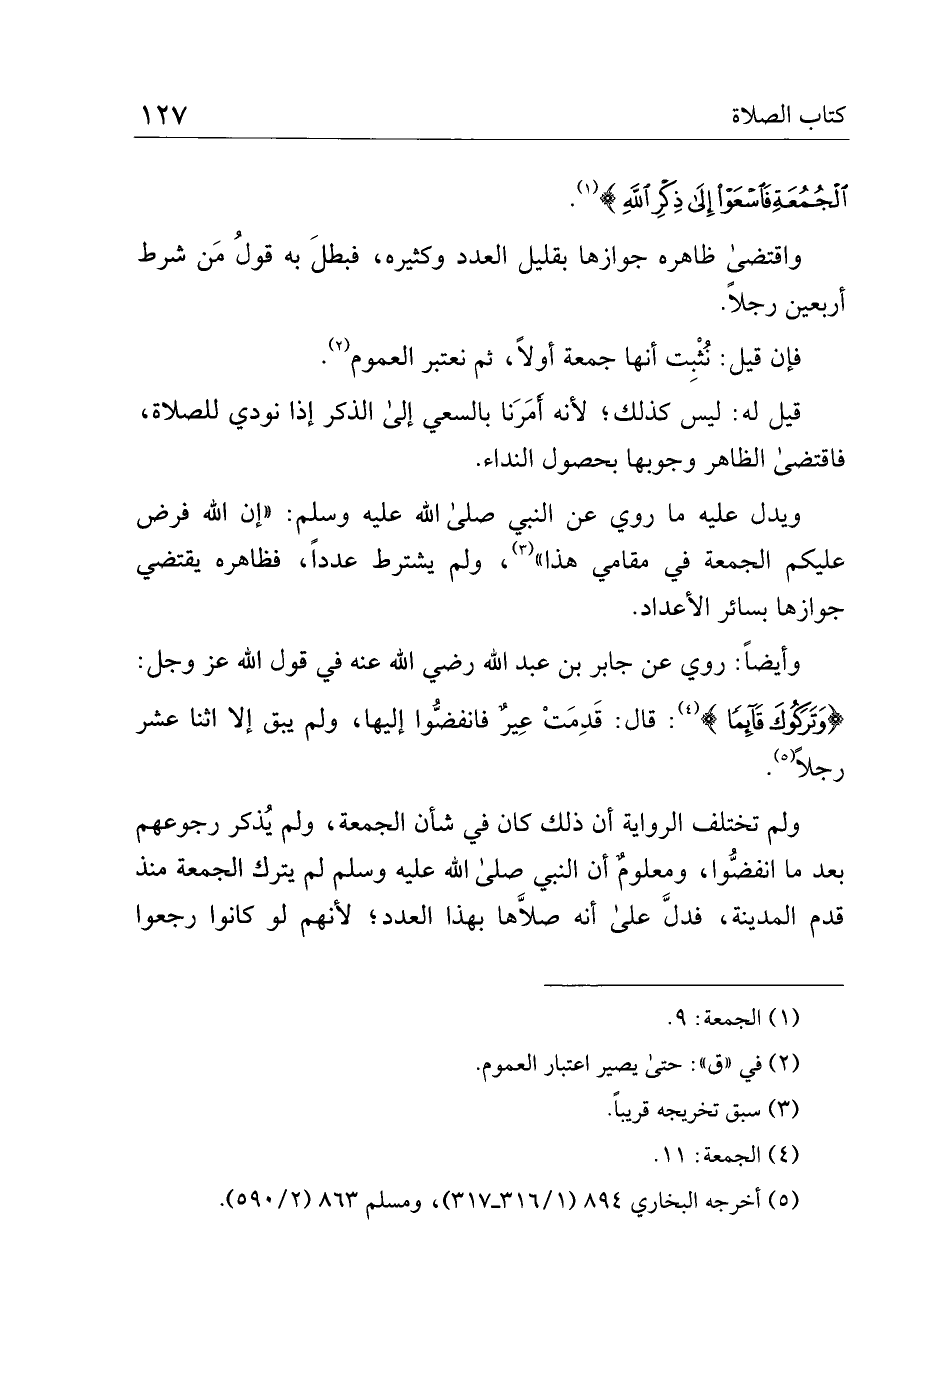 كتاب الصلاة ١٢٧
ٱلْجُمُعَةِ فَٱسْعَوْا۟ إِلَىٰ ذِكْرِ ٱللَّهِ ﴾(١).
واقتضىٰ ظاهره جوازها بقليل العدد وكثيره، فبطلَ به قولُ مَن شرط
أربعين رجلاً.
فإن قيل: نُثْبِت أنها جمعة أولاً، ثم نعتبر العموم(٢).
قيل له: ليس كذلك؛ لأنه أَمَرَنا بالسعي إلىٰ الذكر إذا نودي للصلاة،
فاقتضىٰ الظاهر وجوبها بحصول النداء.
ويدل عليه ما روي عن النبي صلىٰ الله عليه وسلم: «إن الله فرض
عليكم الجمعة في مقامي هذا»(٣)، ولم يشترط عدداً، فظاهره يقتضي
جوازها بسائر الأعداد.
وأيضاً: روي عن جابر بن عبد الله رضي الله عنه في قول الله عز وجل:
﴿وَتَرَكُوكَ قَآئِمًا ﴾(٤): قال: قَدِمَتْ عِيرٌ فانفضُّوا إليها، ولم يبق إلا اثنا عشر
رجلاً(٥).
ولم تختلف الرواية أن ذلك كان في شأن الجمعة، ولم يُذكر رجوعهم
بعد ما انفضُّوا، ومعلومٌ أن النبي صلىٰ الله عليه وسلم لم يترك الجمعة منذ
قدم المدينة، فدلَّ علىٰ أنه صلاَّها بهذا العدد؛ لأنهم لو كانوا رجعوا
(١) الجمعة: ٩.
(٢) في «ق»: حتىٰ يصير اعتبار العموم.
(٣) سبق تخريجه قريباً.
(٤) الجمعة: ١١.
(٥) أخرجه البخاري ٨٩٤ (١/٣١٦ـ٣١٧)، ومسلم ٨٦٣ (٢/٥٩٠).